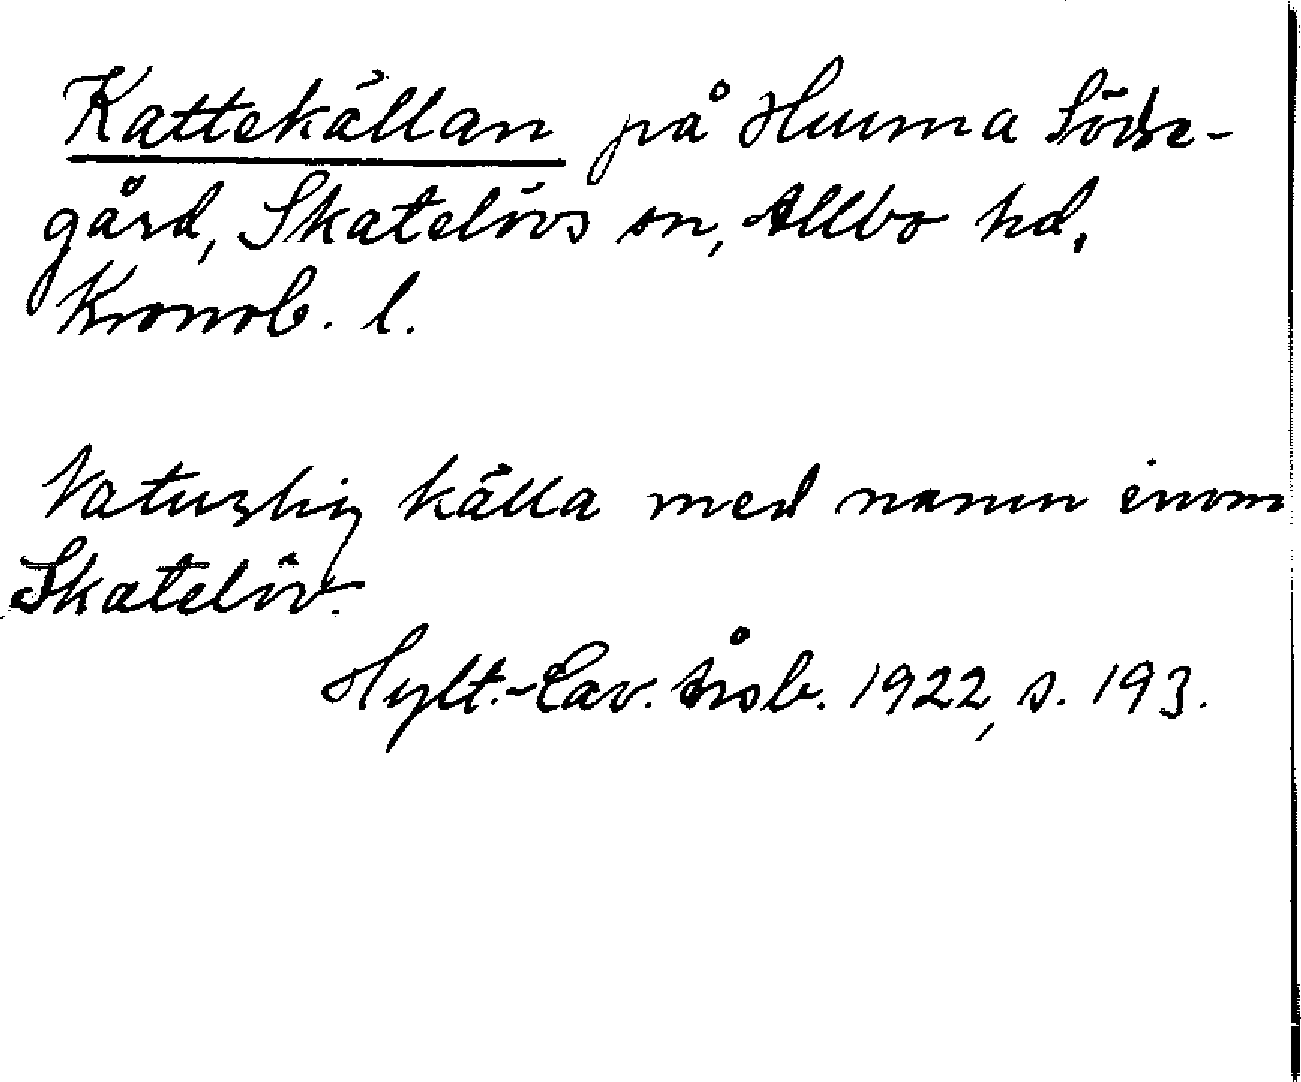 Kattekällan på Hunna Söde-
gård, Skatelövs sn, Allbo hd,
Kronob. l.
Naturlig källa med namn inom
Skatelöv.
Hylt.-Cav. Årsb. 1922, s. 193.